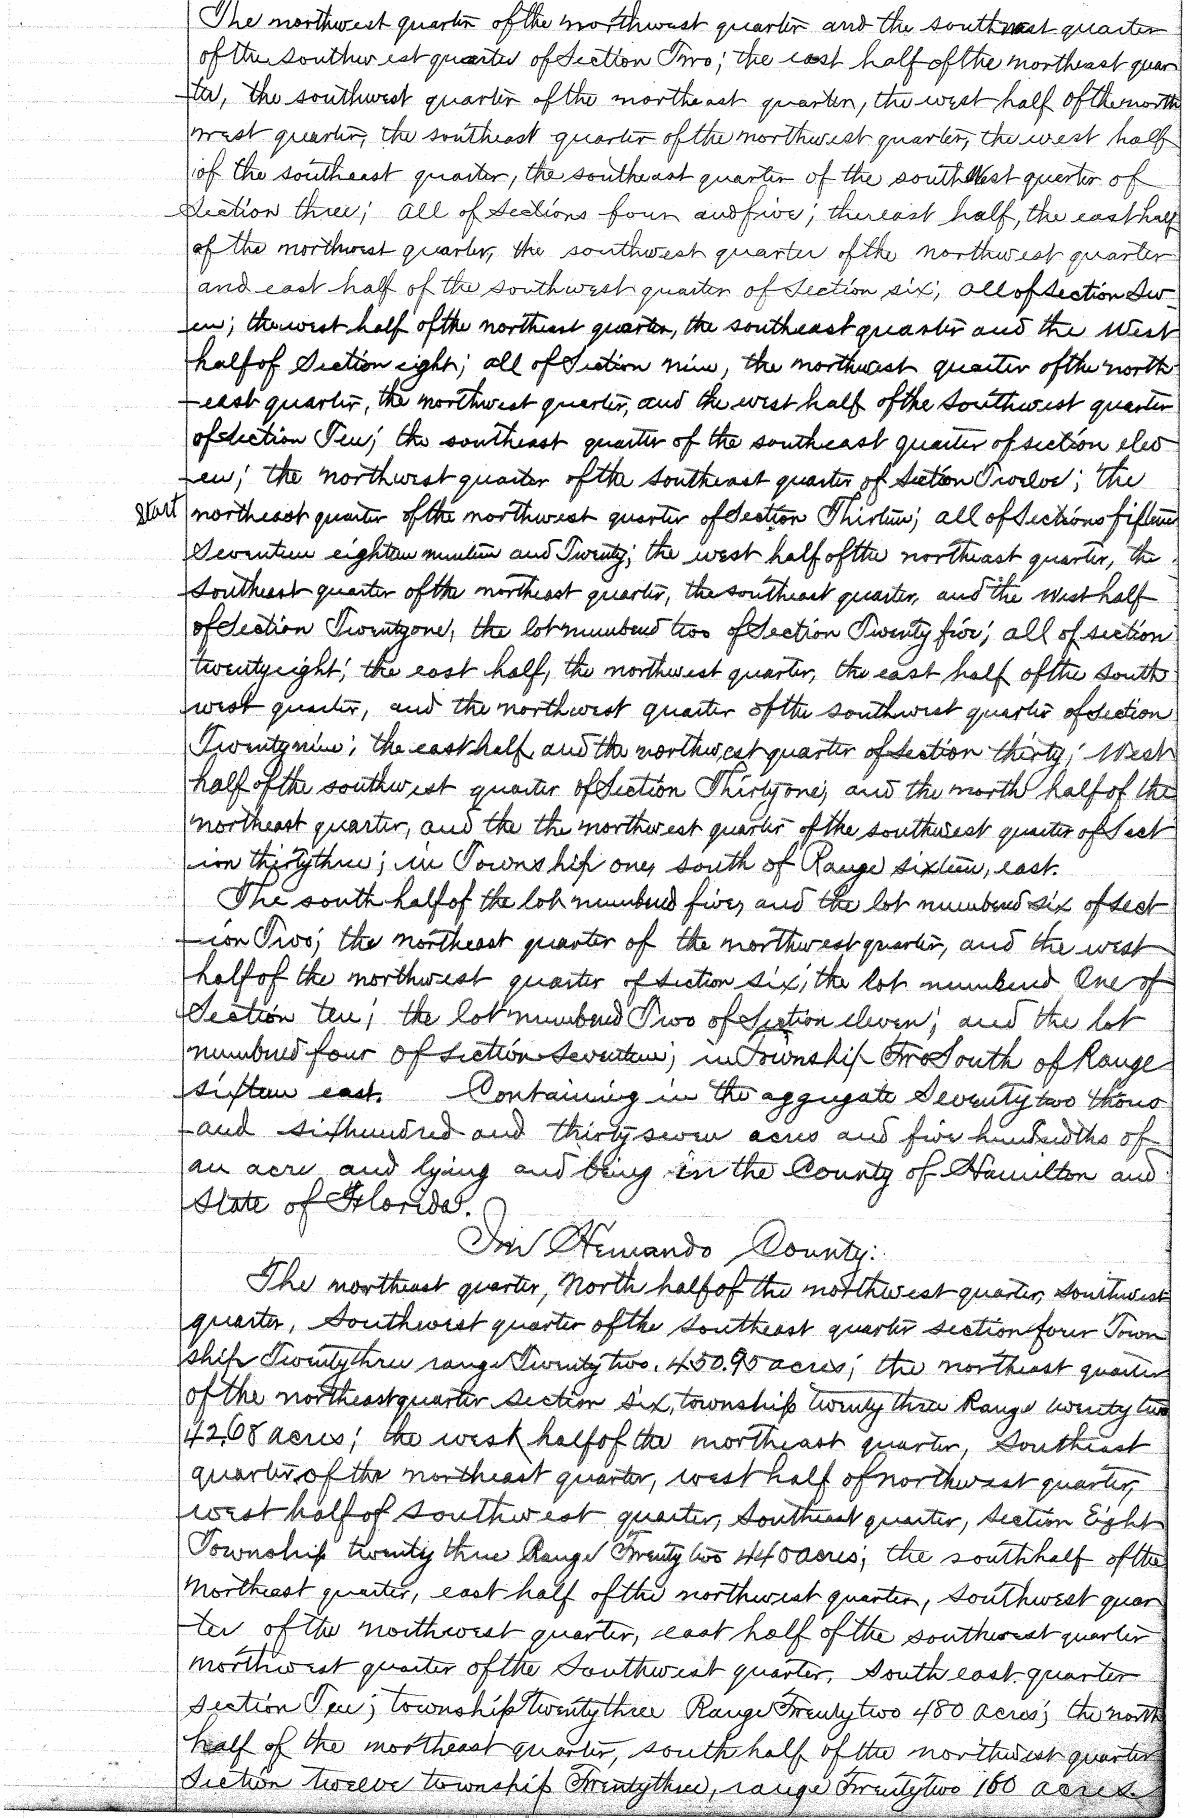 The northwest quarter of the northwest quarter and the southwest quarter
of the southwest quarter of Section Two; the east half of the northeast quar
ter, the southwest quarter of the northeast quarter, the west half of the north
west quarter, the southeast quarter of the northwest quarter, the west half
of the southeast quarter, the southeast quarter of the southwest quarter of
Section three; all of Sections four and five; the east half, the east half
of the northwest quarter, the southwest quarter of the northwest quarter
and east half of the southwest quarter of Section six; all of Section Sev
en; the west half of the northeast quarter, the southeast quarter and the West
half of Section eight; all of Section nine, the northwest quarter of the north
east quarter, the northwest quarter, and the west half of the Southwest quarter
of Section Ten; the southeast quarter of the southeast quarter of section elev
en; the northwest quarter of the southeast quarter of Section Twelve; the
Start northeast quarter of the northwest quarter of Section Thirteen; all of Sections fifteen
Seventeen eighteen nineteen and Twenty; the west half of the northeast quarter, the
Southeast quarter of the northeast quarter, the southeast quarter, and the West half
of Section Twenty one, the lot numbered two of Section Twenty five; all of section
twenty eight; the east half, the northwest quarter, the east half of the south
west quarter, and the northwest quarter of the southwest quarter of Section
Twenty nine; the east half and the northwest quarter of Section thirty; West
half of the southwest quarter of Section Thirty one, and the north half of the
northeast quarter, and the the northwest quarter of the southwest quarter of Sect
ion thirty three; in Township one, south of Range sixteen, east.
The south half of the lot numbered five, and the lot numbered six of Sect
ion Two; the northeast quarter of the northwest quarter, and the west
half of the northwest quarter of section six; the lot numbered One of
Section ten; the lot numbered Two of Section eleven; and the lot
numbered four of Section Seventeen; in Township Two South of Range
sixteen east. Containing in the aggregate Seventy two thous
and six hundred and thirty seven acres and five hundredths of
an acre and lying and being in the County of Hamilton and
State of Florida.
In Hernando County:
The northeast quarter, North half of the northwest quarter, southwest
quarter, Southwest quarter of the southeast quarter section four Town
ship Twenty three range Twenty two. 450.95 acres; the northeast quarter
of the northeast quarter section six, township twenty three Range twenty two
42.68 acres; the west half of the northeast quarter, Southeast
quarter of the northeast quarter, west half of northwest quarter,
west half of southwest quarter, Southeast quarter, section Eight
Township twenty three Range Twenty two 440 acres; the south half of the
Northeast quarter, east half of the northwest quarter, Southwest quar
ter of the northwest quarter, east half of the southwest quarter
northwest quarter of the Southwest quarter, South east quarter
section Ten; township twenty three Range Twenty two 480 acres; the north
half of the northeast quarter, south half of the northwest quarter
Section twelve township Twenty three, range Twenty two 160 acres.